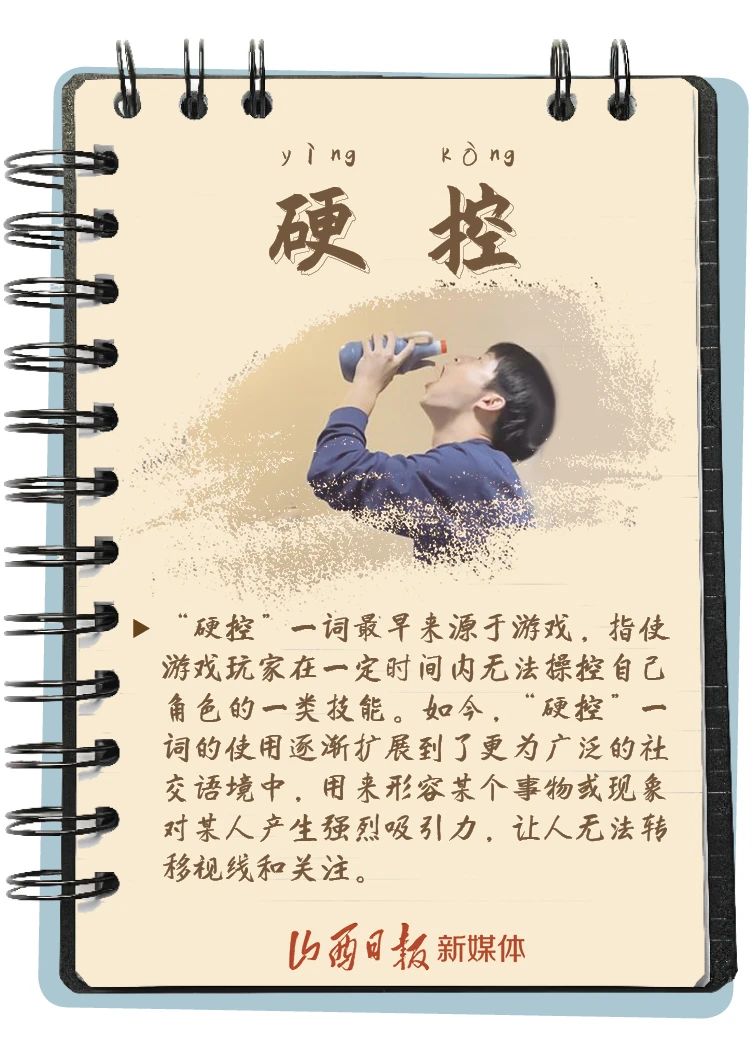 yìng kòng
硬控
“硬控”一词最早来源于游戏，指使
游戏玩家在一定时间内无法操控自己
角色的一类技能。如今，“硬控”一
词的使用逐渐扩展到了更为广泛的社
交语境中，用来形容某个事物或现象
对某人产生强烈吸引力，让人无法转
移视线和关注。
山西日报新媒体